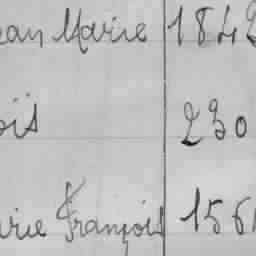 ean Marie 1842
oïs 230
rie François 1561